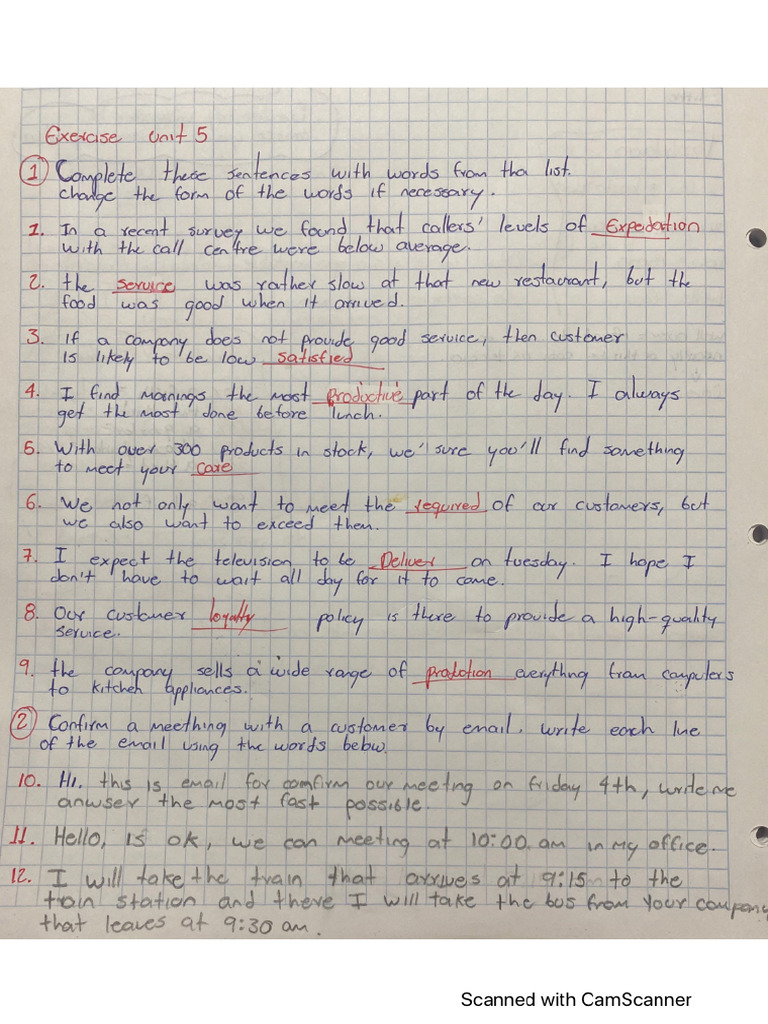 Exercise Unit 5
1 Complete these sentences with words from tha list.
change the form of the words if necessary.
1. In a recent survey we found that callers' levels of Expedation
with the call centre were below average.
2. the service was rather slow at that new restaurant, but the
food was good when it arrived.
3. If a company does not provide good service, then customer
is likely to be low satisfied
4. I find mornings the most productive part of the day. I always
get the most done before lunch.
5. With over 300 products in stock, we'sure you'll find something
to meet your care
6. We not only want to meet the required of our customers, but
we also want to exceed them.
7. I expect the television to be Deliver on tuesday. I hope I
don't have to wait all day for it to come.
8. Our customer loyalty policy is there to provide a high-quality
service.
9. the company sells a wide range of prodotion everything from computers
to kitchen appliances.
2 Confirm a meething with a customer by email. write each lue
of the email using the words below.
10. Hi. this is email for comfirm our meeting on friday 4th, write me
anwser the most fast possible.
11. Hello, is ok, we can meeting at 10:00 am in my office.
12. I will take the train that arrives at 9:15 to the
train station and there I will take the bus from your company
that leaves at 9:30 am.
Scanned with CamScanner